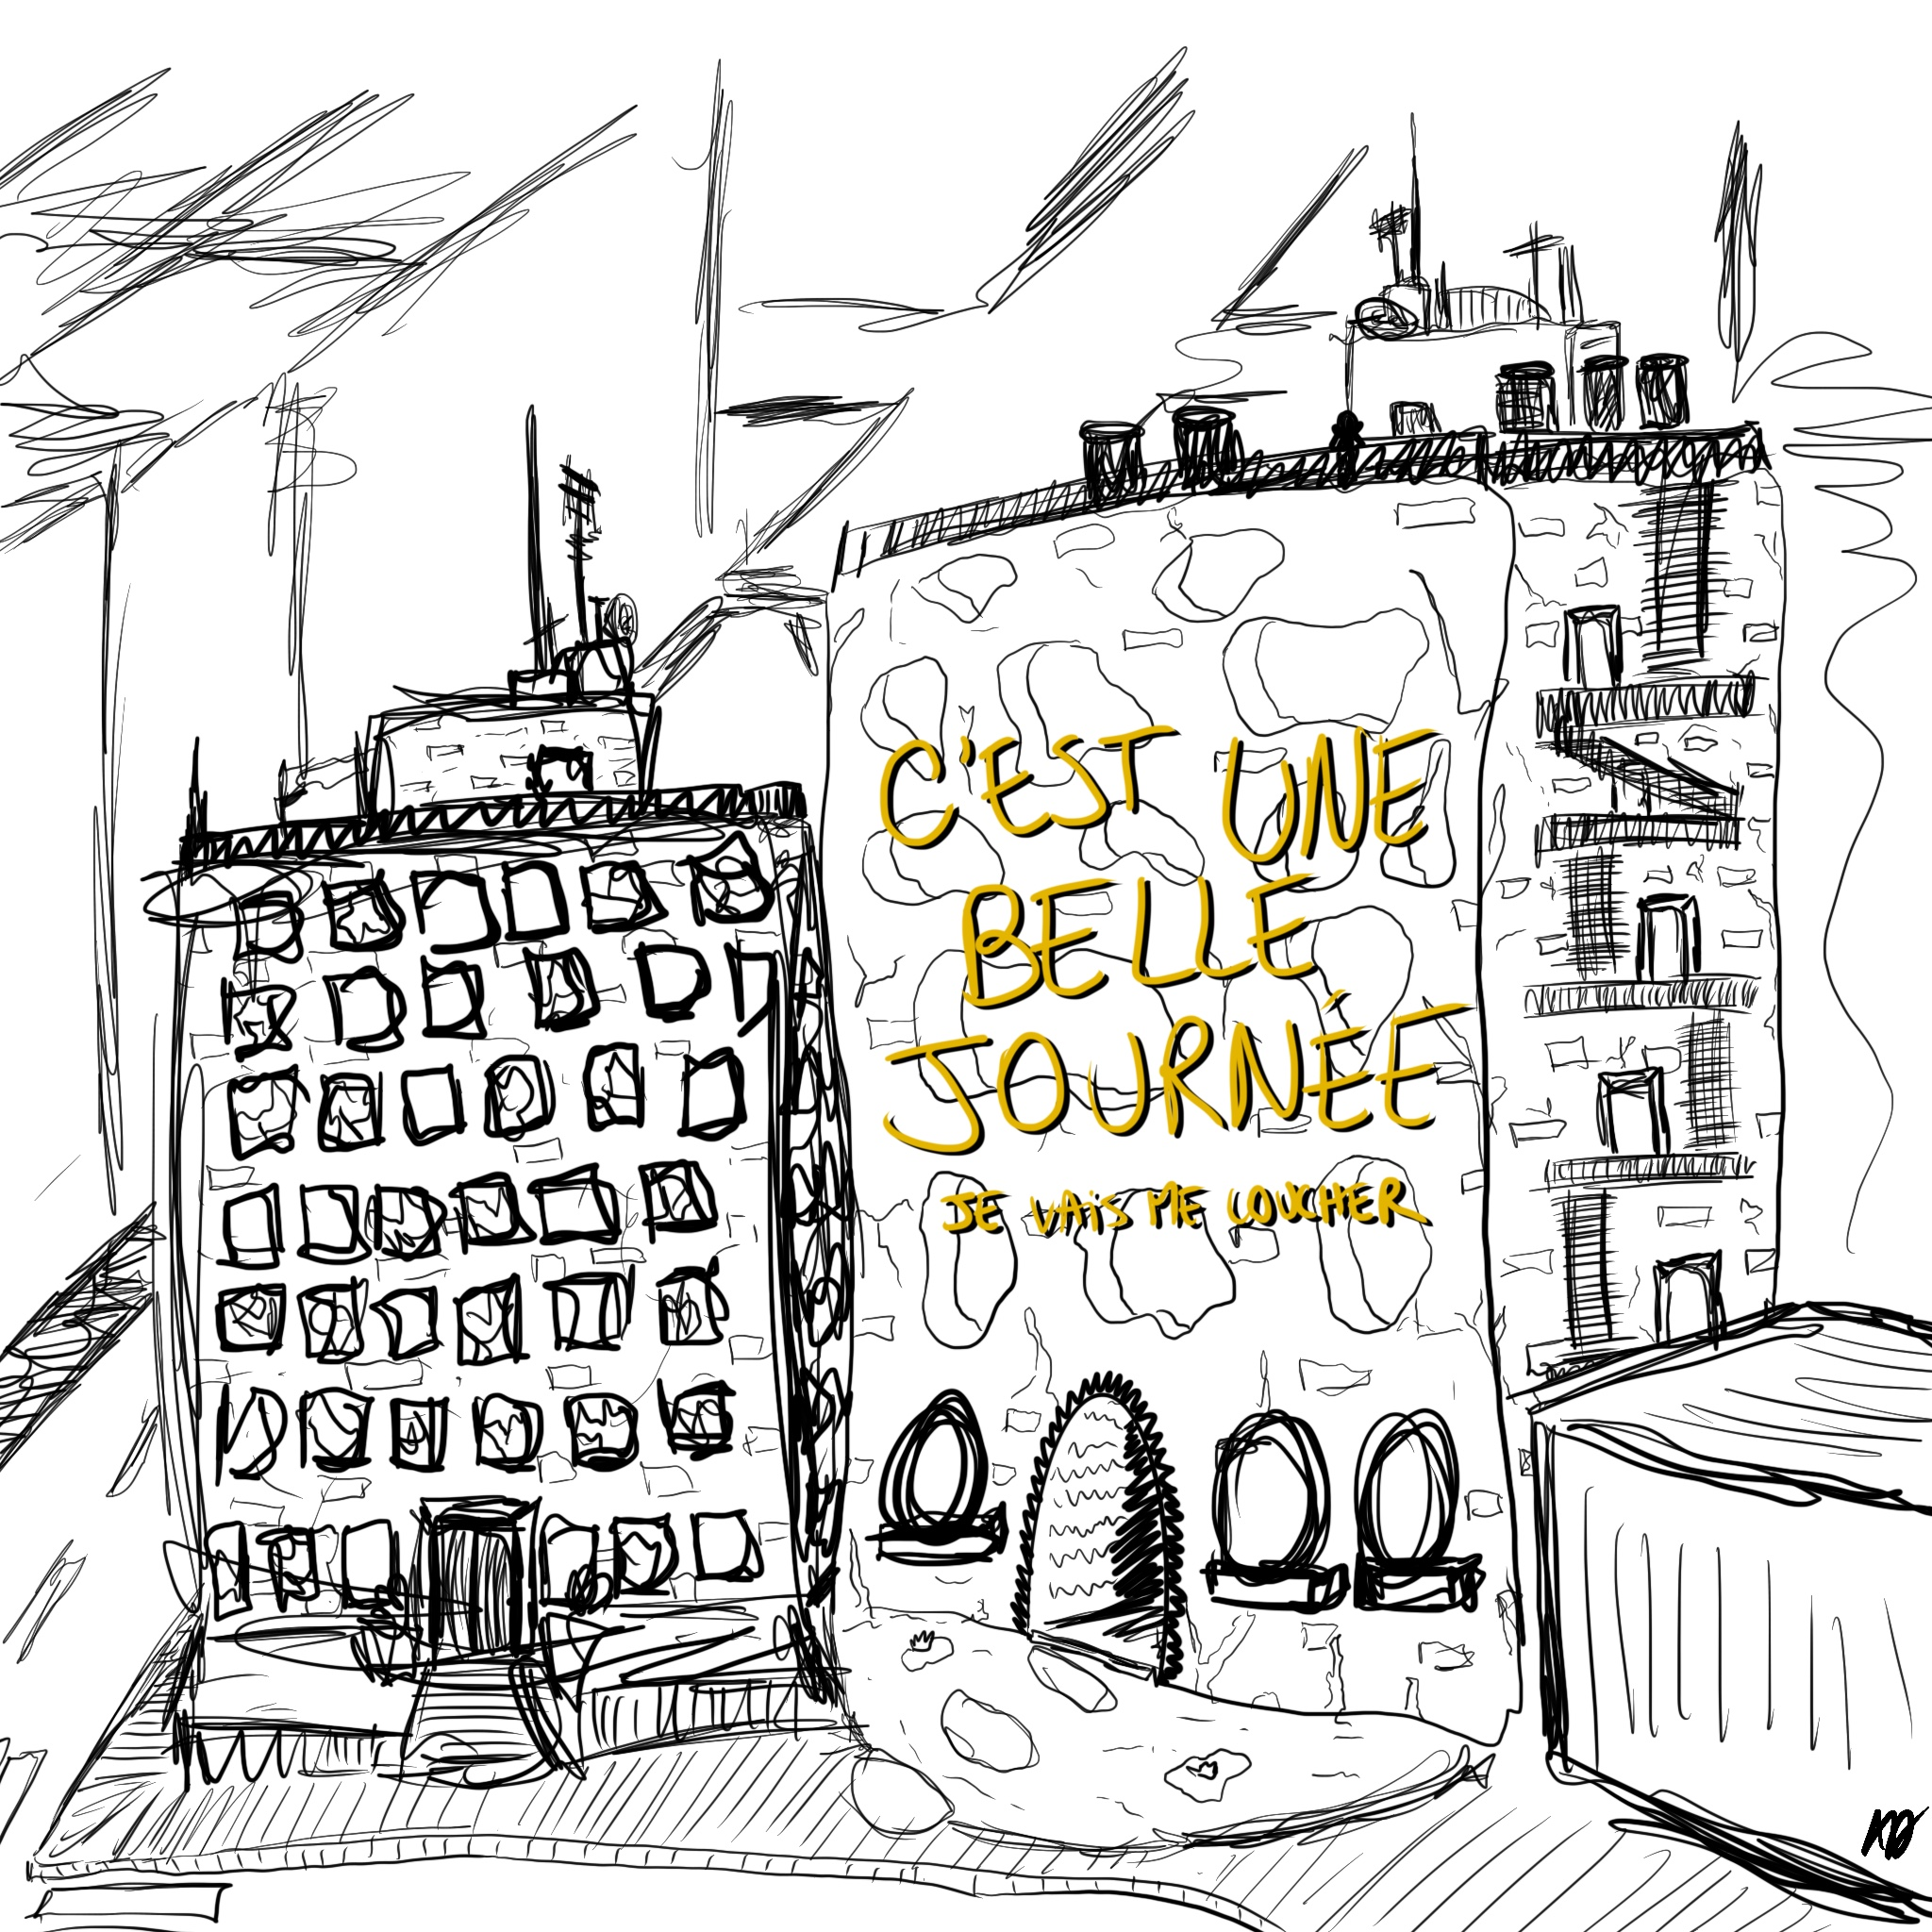 C'EST UNE
BELLE
JOURNÉE
JE VAiS ME COUCHER